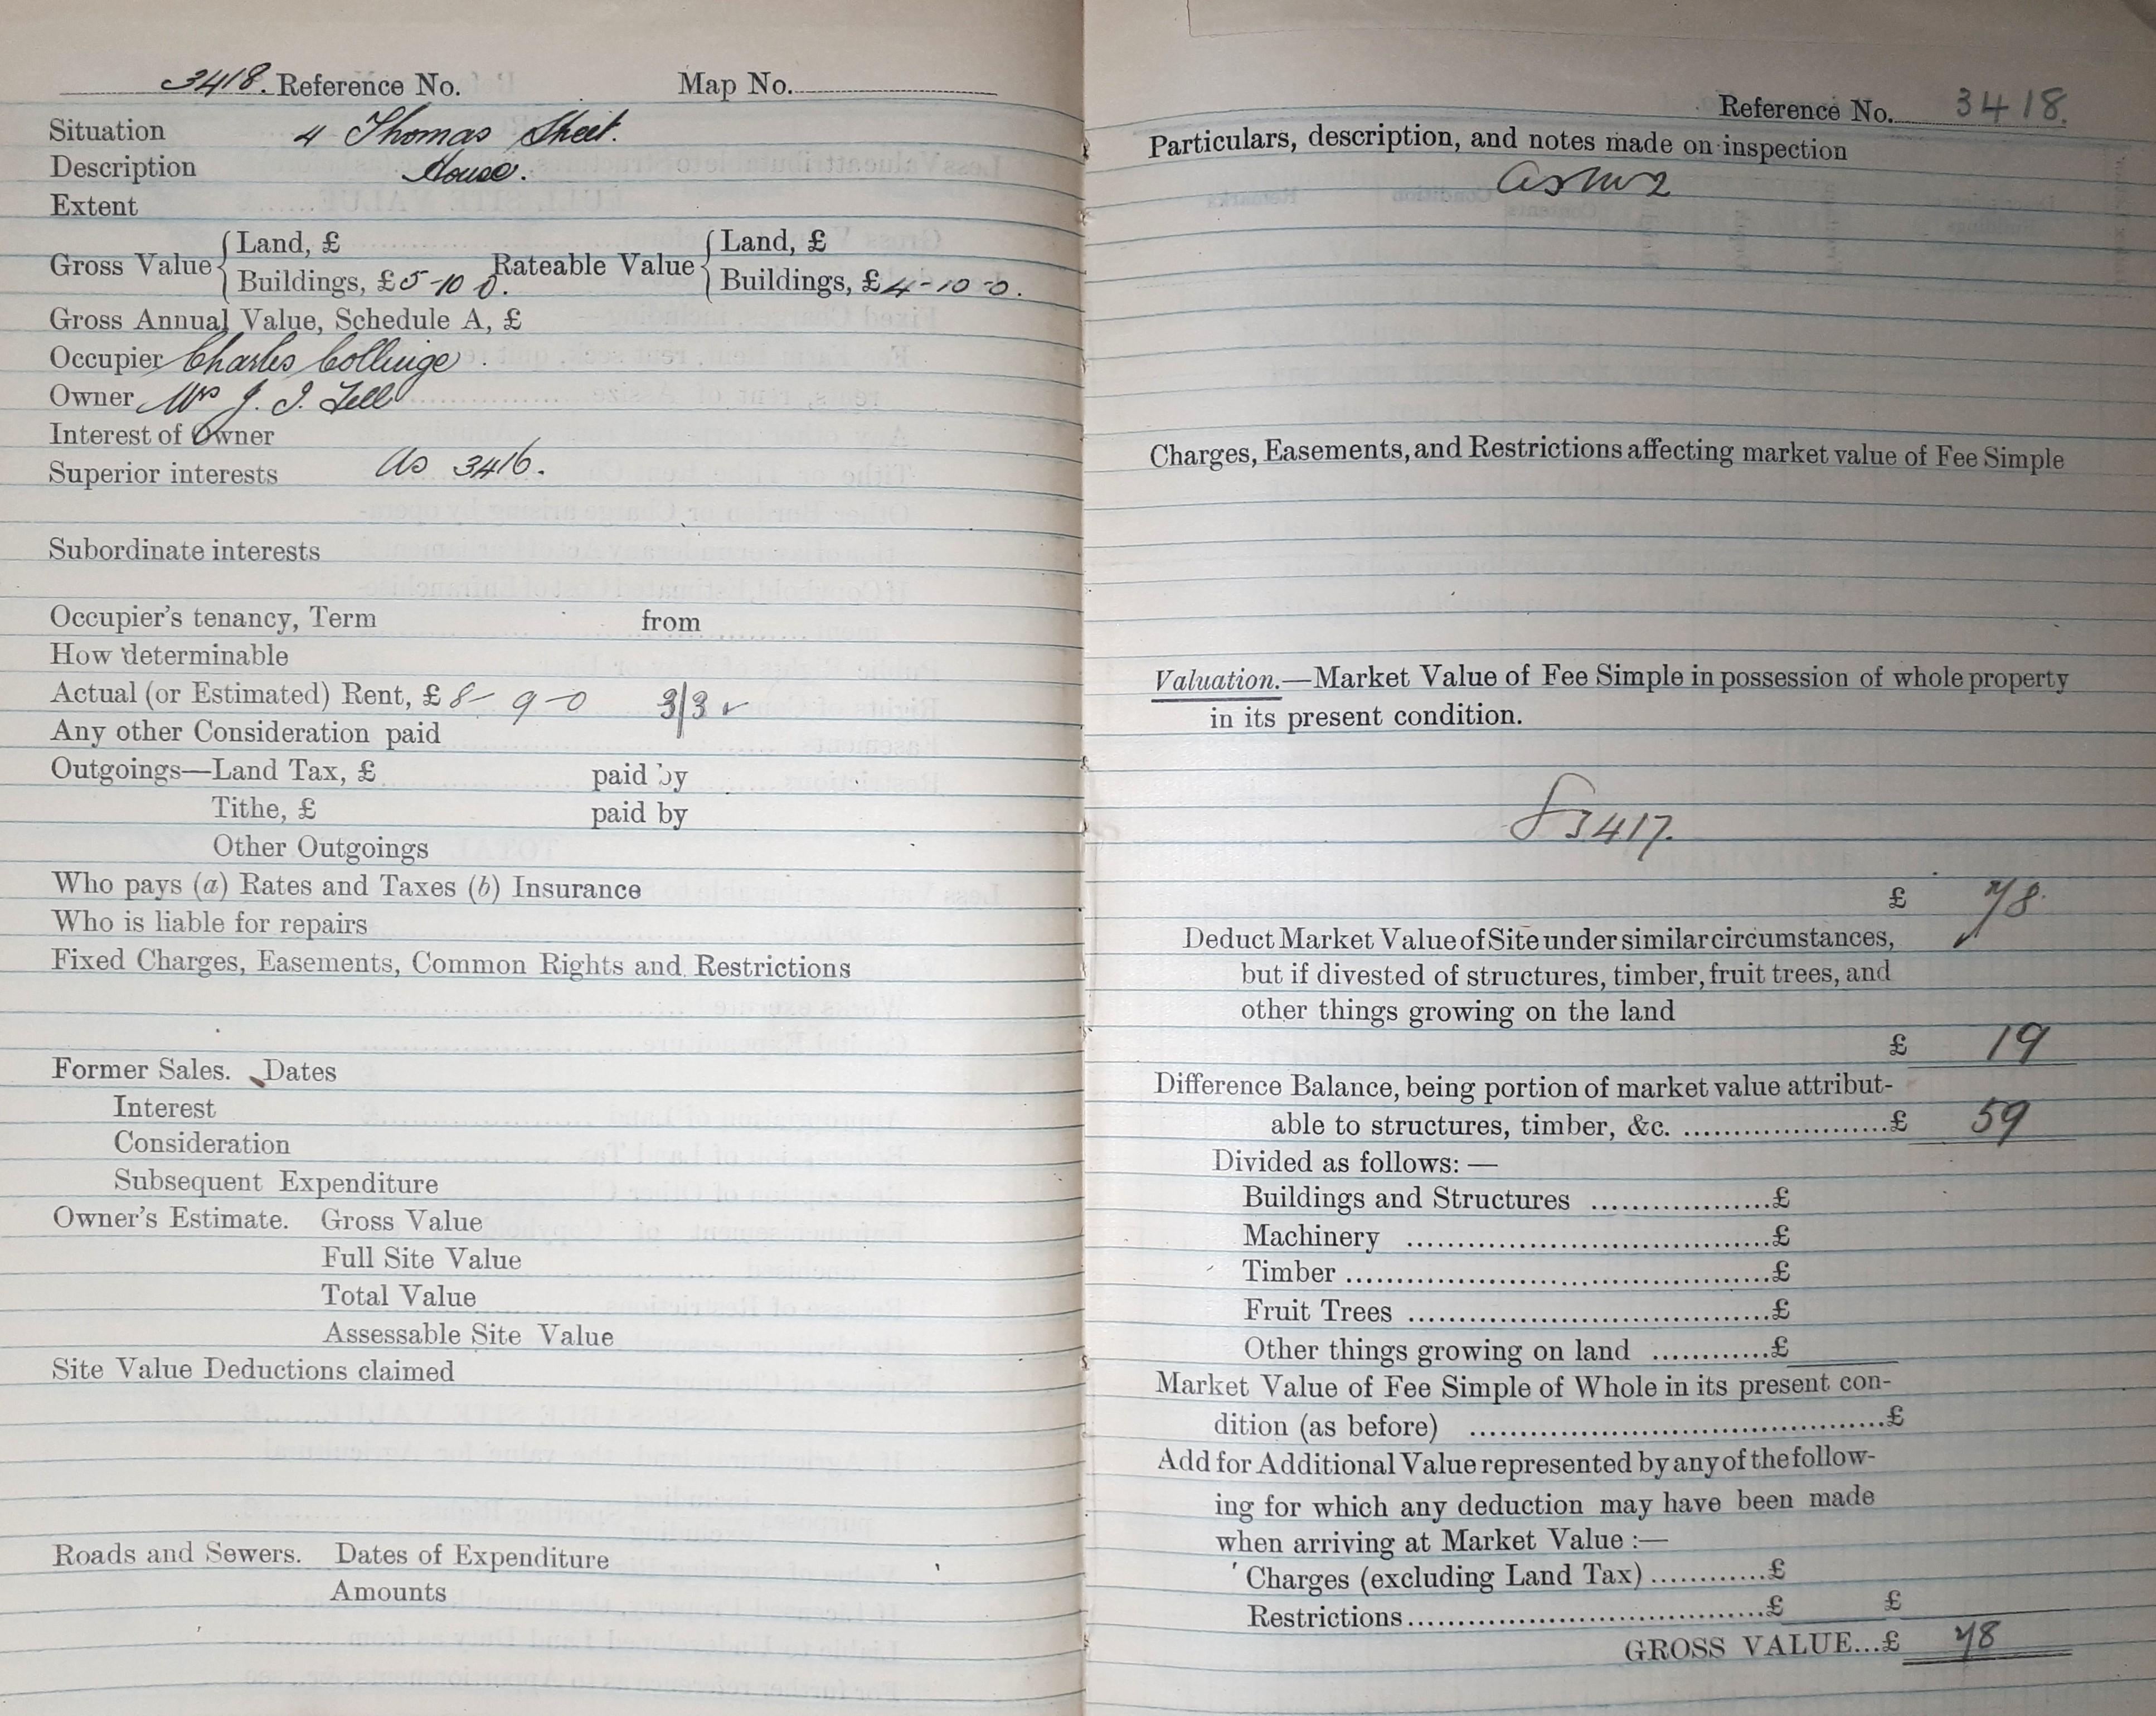 3418. Reference No. Map No.
Situation 4 Thomas Street.
Description House.
Extent
Gross Value { Land, £ Rateable Value { Land, £
Buildings, £5-10 0. Buildings, £4-10-0.
Gross Annual Value, Schedule A, £
Occupier Charles Collinge.
Owner Mrs J. I. Fell
Interest of Owner
Superior interests As 3416.
Subordinate interests
Occupier's tenancy, Term from
How determinable
Actual (or Estimated) Rent, £8-9-0 3/3
Any other Consideration paid
Outgoings—Land Tax, £ paid by
Tithe, £ paid by
Other Outgoings
Who pays (a) Rates and Taxes (b) Insurance
Who is liable for repairs
Fixed Charges, Easements, Common Rights and Restrictions
Former Sales. Dates
Interest
Consideration
Subsequent Expenditure
Owner's Estimate. Gross Value
Full Site Value
Total Value
Assessable Site Value
Site Value Deductions claimed
Roads and Sewers. Dates of Expenditure
Amounts
Reference No. 3418.
Particulars, description, and notes made on inspection
Charges, Easements, and Restrictions affecting market value of Fee Simple
Valuation.—Market Value of Fee Simple in possession of whole property
in its present condition.
3417.
£ 78.
Deduct Market Value of Site under similar circumstances,
but if divested of structures, timber, fruit trees, and
other things growing on the land
£ 19
Difference Balance, being portion of market value attribut-
able to structures, timber, &c. ....................£ 59
Divided as follows: —
Buildings and Structures ..................£
Machinery ....................................£
Timber ..........................................£
Fruit Trees ....................................£
Other things growing on land ............£
Market Value of Fee Simple of Whole in its present con-
dition (as before) .........................................£
Add for Additional Value represented by any of the follow-
ing for which any deduction may have been made
when arriving at Market Value :—
Charges (excluding Land Tax) ............£
Restrictions....................................£ £
GROSS VALUE...£ 78